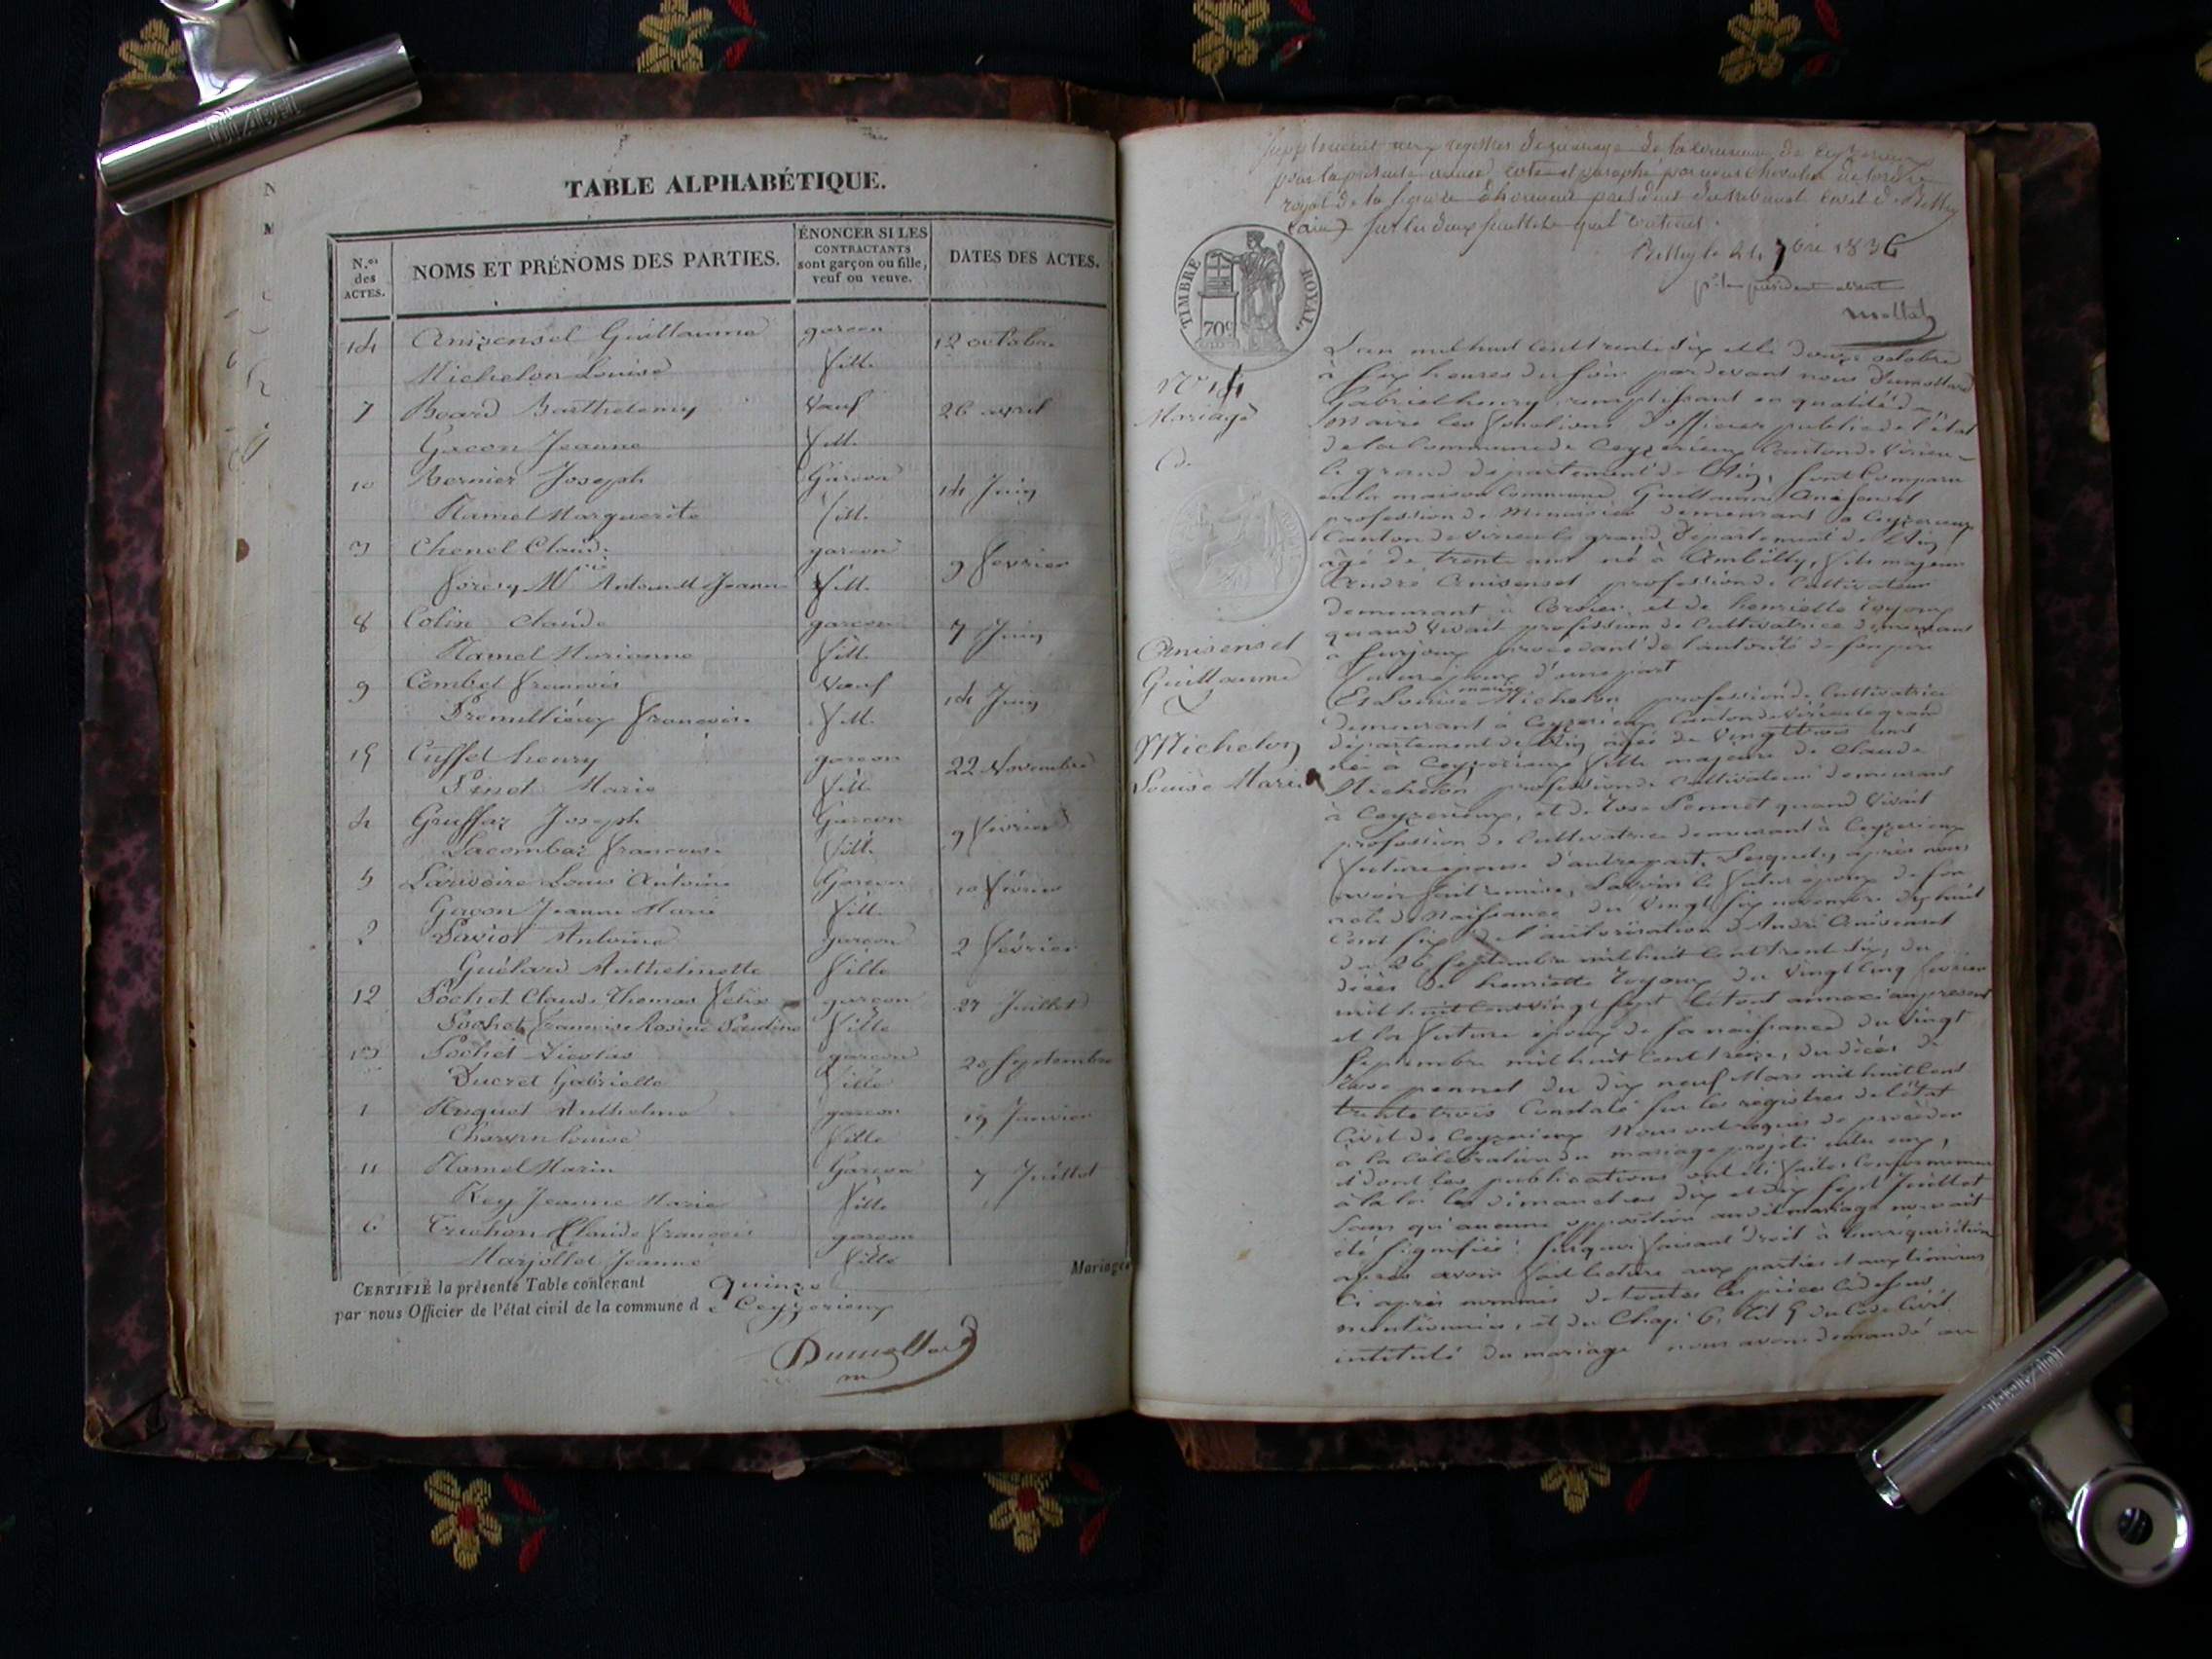 TABLE ALPHABÉTIQUE.
N.os des ACTES.
NOMS ET PRÉNOMS DES PARTIES.
ÉNONCER SI LES CONTRACTANTS sont garçon ou fille, veuf ou veuve.
DATES DES ACTES.
14 Anisensel Guillaume garcon 12 octobre
Michelon Louise fille
7 Board Barthelemy Veuf 26 avril
Gacon Jeanne fille
10 Bernier Joseph Garcon 14 Juin
Ramel Marguerite fille
3 Chenel Claude garcon 9 fevrier
Antoinette Jeanne fille
8 Colin Claude garcon 7 Juin
Ramel Marianne fille
9 Combet francois Veuf 14 Juin
Premillieux francoise fille
15 Cuffet henry garcon 22 Novembre
Pinot Marie fille
4 Gruffaz Joseph Garcon 9 fevrier
francoise fille
5 Louis Antoine Garcon 10 fevrier
Jeanne Marie fille
2 Antoine garcon 2 fevrier
Anthelmette fille
12 Pochet Claude Thomas félix garcon 27 Juillet
Pochet francoise Rosine fille
13 Pochet Nicolas garcon 20 Septembre
Ducret Gabrielle fille
1 Anthelme garcon 19 Janvier
Louise fille
11 Ramel Marin Garcon 7 Juillet
Rey Jeanne Marie fille
6 Truchon Claude francois garcon
Marjollet Jeanne fille
CERTIFIÉ la présente Table contenant quinze Mariages
par nous Officier de l'état civil de la commune de Ceyzerieux
Dumollard
m
Supplement aux registres de mariage de la commune de Ceyzerieux
pour la présente année, coté et paraphé par nous Chevalier de l'ordre
royal de la légion d'honneur president du tribunal civil de Belley
(ain) sur les deux feuillets qu'il contient.
Belley le 24 7bre 1836
pr le president absent
TIMBRE ROYAL.
N° 14
Mariage
de
Anisensel
Guillaume
&
Michelon
Louise Marie
L'an mil huit cent trente six et le douze octobre
à six heures du soir par devant nous Dumollard
Gabriel henry remplissant en qualité de
maire les fonctions d'officier public de l'état
de la commune de Ceyzerieux Canton de Virieu-
le grand département de l'Ain, sont comparu
en la maison Commune, Guillaume Anisensel
profession de Menuisier demeurant a Ceyzerieux
Canton de Virieu le grand Département de l'Ain
âgé de trente ans né à Ambilly, fils majeur
André Anisensel profession de Cultivateur
demeurant à et de henriette
quand vivait profession de Cultivatrice demeurant
à Surjoux procedant de l'autorité de son pere
futur époux d'une part
Et Louise marie Michelon profession de Cultivatrice
demeurant à Ceyzerieux Canton de Virieu le grand
département de l'Ain âgée de Vingt trois ans
née à Ceyzerieux fille majeure de Claude
Michelon profession de Cultivateur demeurant
à Ceyzerieux, et de Rose Pennet quand vivait
profession de Cultivatrice demeurant à Ceyzerieux
future épouse d'autre part, Lesquels, après nous
avoir fait remise, savoir le futur époux de son
acte de Naissance du Vingt six novembre dix huit
cent six de l'autorisation d'André Anisensel
du 26 Septembre mil huit cent trente six, du
décès de henriette du vingt cinq fevrier
mil huit cent vingt sept le tout annexé au present
et la future épouse de sa naissance du Vingt
Septembre mil huit cent treize, du décès de
Rose pennet du dix neuf Mars mil huit cent
trente trois Constaté sur les registres de l'état
Civil de Ceyzerieux Nous ont requis de procéder
à la Célébration du mariage projeté entre eux,
et dont les publications ont été faites Conformément
à la loi les dimanches dix et dix sept Juillet
sans qu'aucune opposition audit mariage nous ait
été signifiée: faisant droit à leur réquisition
après avoir fait lecture aux parties et aux témoins
Ci après nommés de toutes les pièces ci dessus
mentionnées, et du Chap. 6, tit 5 du Code Civil
intitulé du mariage nous avons demandé au